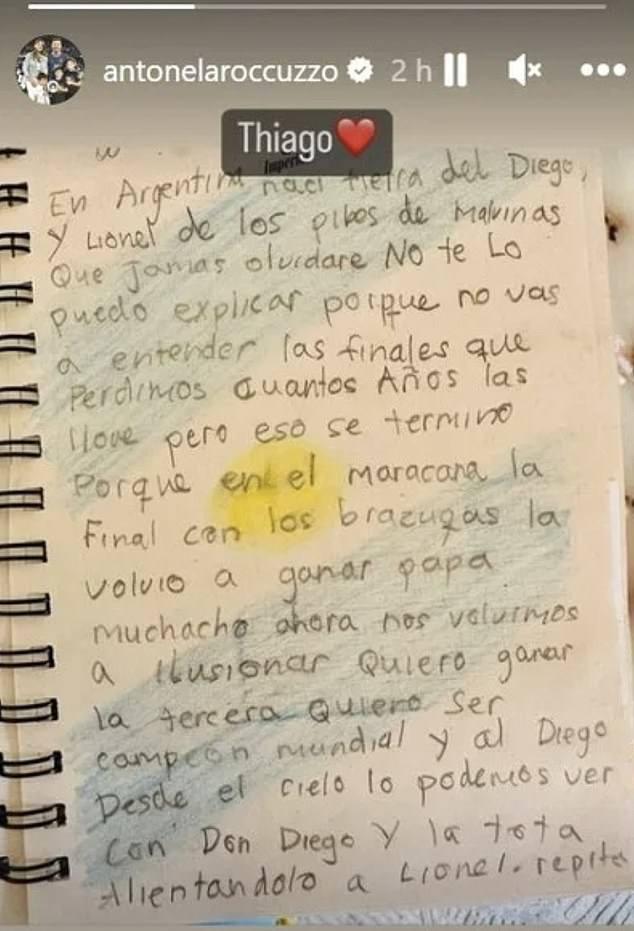 antonelaroccuzzo 2 h
Thiago❤️
En Argentina naci tierra del Diego,
y Lionel de los pibes de Malvinas
Que Jamas olvidare No te Lo
puedo explicar porque no vas
a entender las finales que
Perdimos cuantos Años las
llore pero eso se termino
Porque en el maracana la
Final con los brazugas la
volvio a ganar papa
muchacho ahora nos volvimos
a Ilusionar Quiero ganar
la tercera Quiero Ser
campeon mundial y al Diego
Desde el cielo lo podemos ver
con Don Diego Y la tota
Alientandolo a Lionel. repite